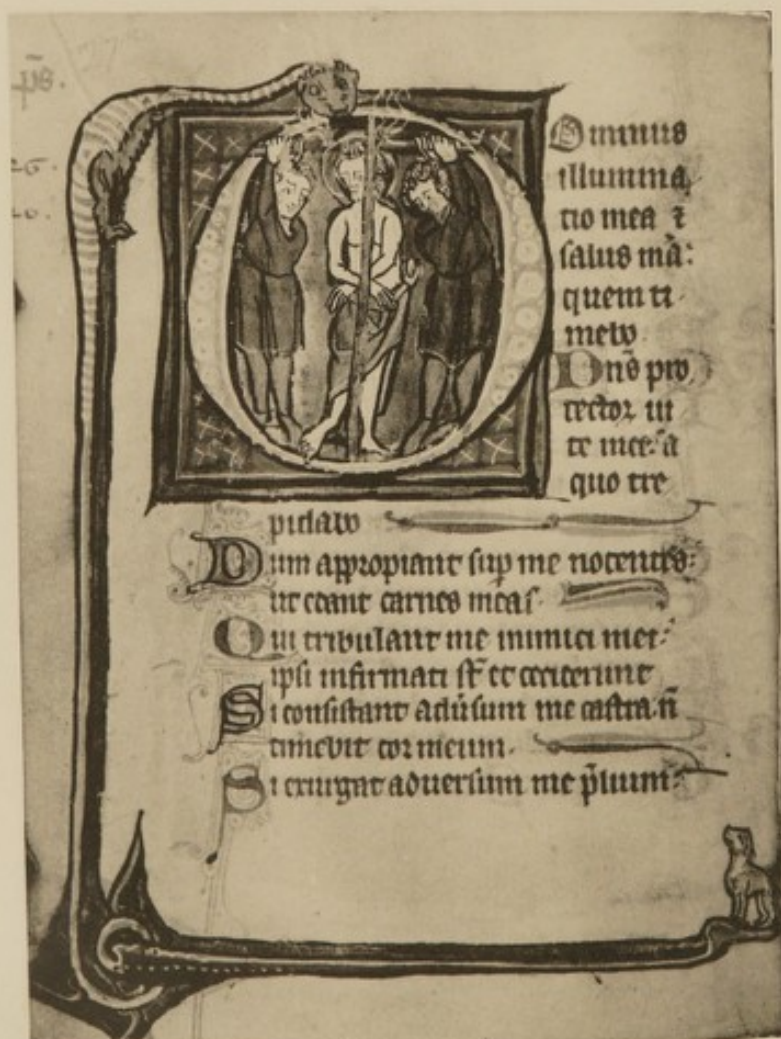 DOminus
illumina
tio mea ⁊
salus mā:
quem ti
mebo
Dn̄s pro
tector ui
te mee: a
quo tre
pidabo
Dum appropiant sup̄ me nocentes:
ut edant carnes meas.
Qui tribulant me inimici mei:
ipsi infirmati st̄ et ceciderunt
Si consistant adūsum me castra: n̄
timebit cor meum.
Si exurgat adversum me p̄lium: